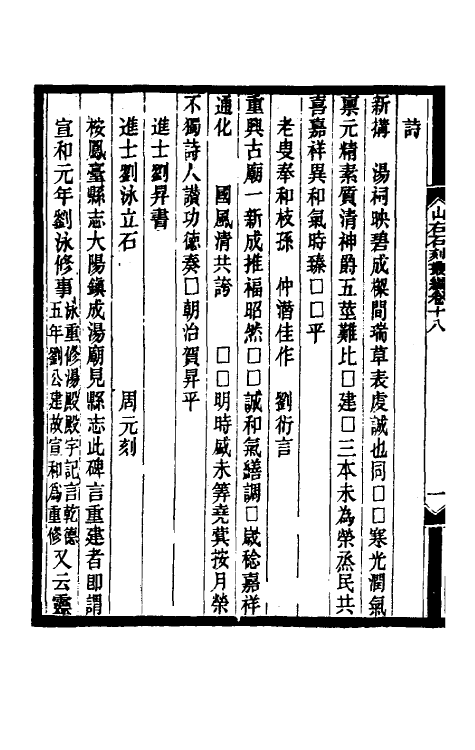 山右石刻叢編卷十八
一
詩
新搆　湯祠映碧成樑間瑞草表虔誠也同□□寒光潤氣
稟元精素質清神爵五莖難比□建□三本未為榮烝民共
喜嘉祥異和氣時臻□□平
老叟奉和枝孫　仲潛佳作　劉衍言
重興古廟一新成推福昭然□□誠和氣繕調□嵗稔嘉祥
通化　國風清共誇　□□明時感未筭堯蓂按月榮
不獨詩人讚功德奏□朝治賀昇平
進士劉昇書
進士劉泳立石　周元刻
桉鳳臺縣志大陽鎮成湯廟見縣志此碑言重建者即謂
宣和元年劉泳修事泳重修湯殿殿宇記言乾德五年劉公建故宣和為重修又云靈